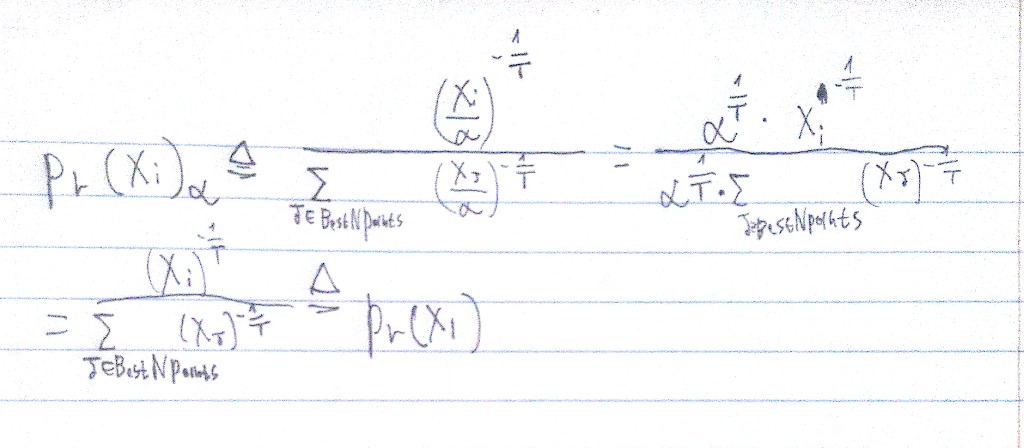 Pr(X_i)_α ≜ (X_i/α)^{-1/T} / Σ_{J∈BestNpoints} (X_J/α)^{-1/T} = α^{1/T} · X_i^{-1/T} / α^{1/T} · Σ_{J∈BestNpoints} (X_J)^{-1/T}
= (X_i)^{-1/T} / Σ_{J∈BestNPoints} (X_J)^{-1/T} ≜ Pr(X_i)